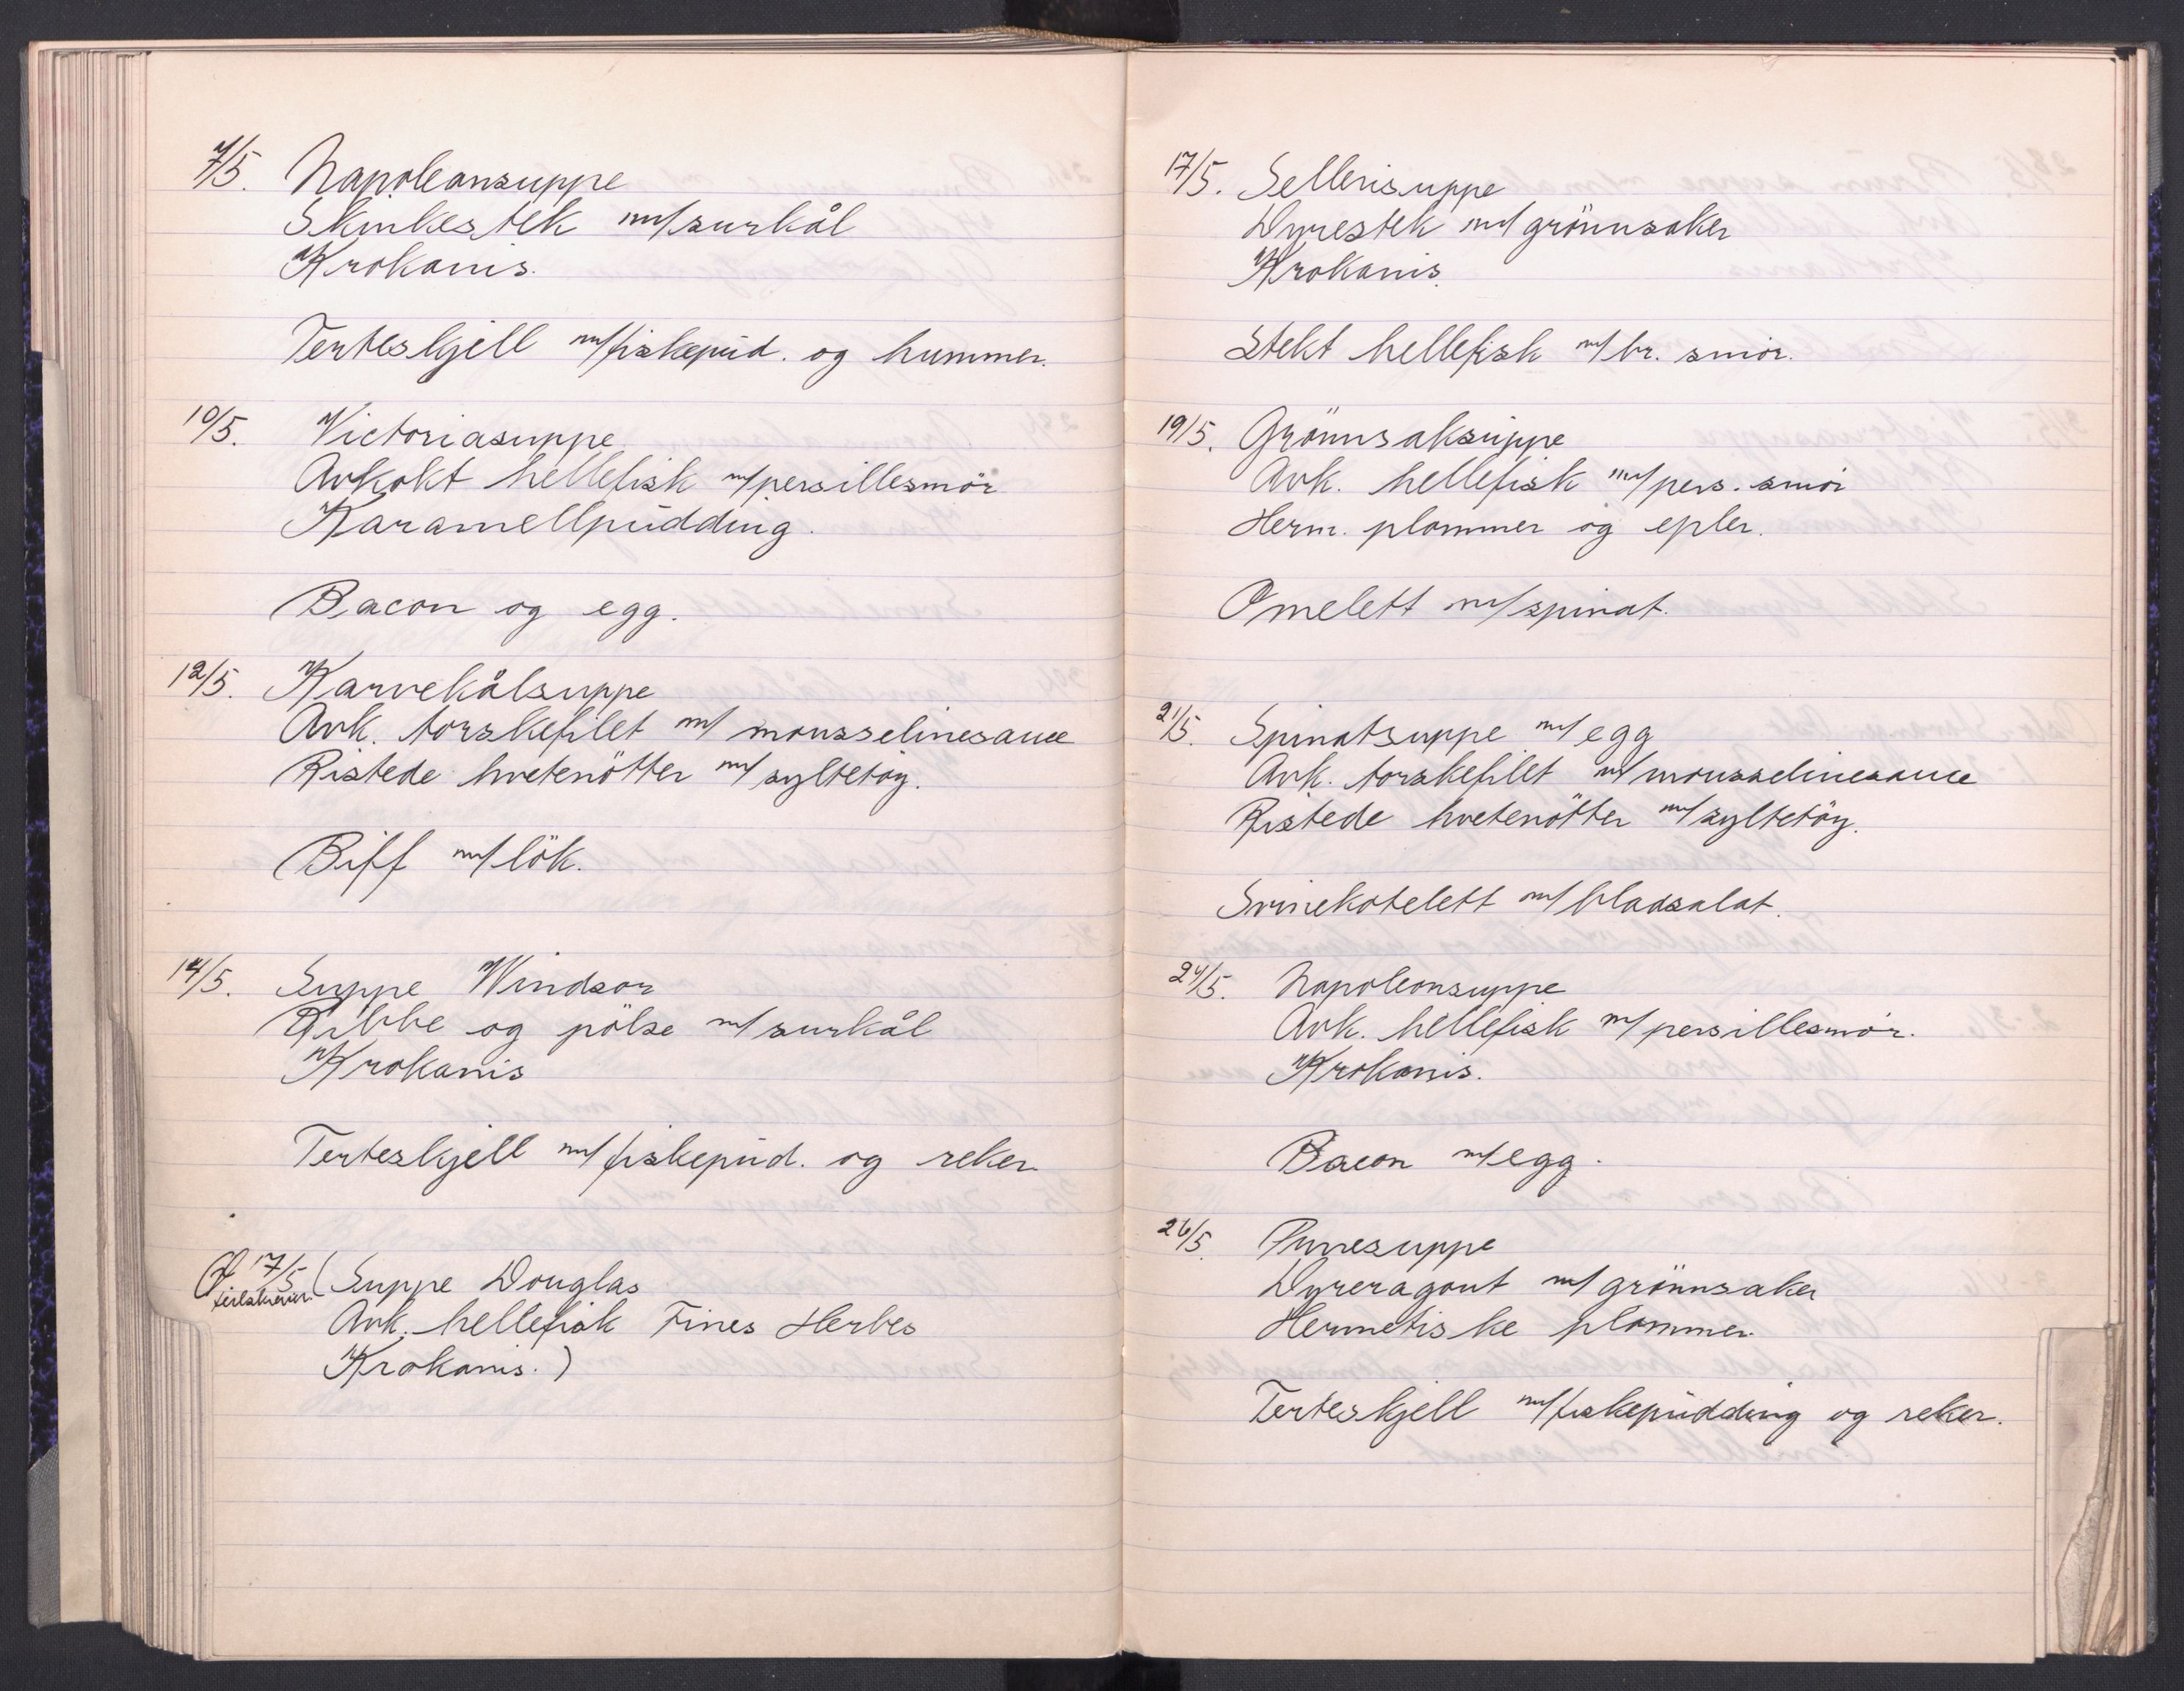 7/5. Napoleonsuppe
Skinkestek m/surkål
Krokanis.
Terteskjell m/fiskepud. og hummer.
10/5. Victoriasuppe
Avkokt hellefisk m/persillesmör
Karamellpudding.
Bacon og egg.
12/5. Karvekålsuppe
Avk. torskefilet m/ mousselinesauce
Ristede hvetenötter m/syltetöy.
Biff m/lök.
14/5. Suppe Windsor
Ribbe og pölse m/surkål
Krokanis
Terteskjell m/fiskepud. og reker
17/5 (Suppe Douglas
feilskrevet
Avk. hellefisk Fines Herbes
Krokanis.)
17/5. Sellerisuppe
Dyrestek m/grönnsaker
Krokanis.
Stekt hellefisk m/br. smör.
19/5. Grönnsaksuppe
Avk. hellefisk m/pers. smör
Herm. plommer og epler.
Omelett m/spinat.
21/5. Spinatsuppe m/egg
Avk. torskefilet m/mousselinesauce
Ristede hvetenötter m/syltetöy.
Svinekotelett m/bladsalat.
24/5. Napoleonsuppe
Avk. hellefisk m/persillesmör.
Krokanis.
Bacon m/egg.
26/5. Purresuppe
Dyreragout m/grönnsaker
Hermetiske plommer
Terteskjell m/fiskepudding og reker.